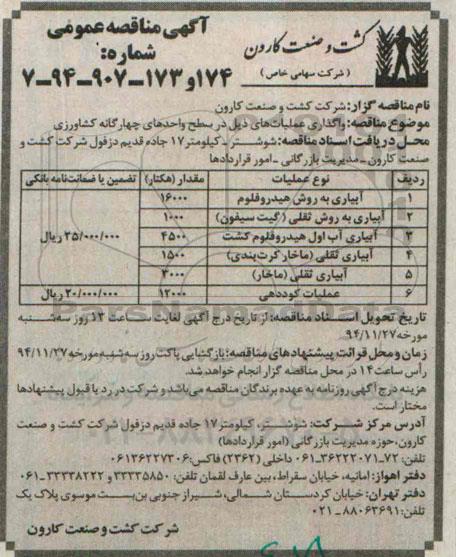 آگهی مناقصه عمومی
شماره:
۱۷۴و۱۷۳-۹۰۷-۹۴-۷
کشت و صنعت کارون
(شرکت سهامی خاص)
نام مناقصه گزار: شرکت کشت و صنعت کارون
موضوع مناقصه: واگذاری عملیات‌های ذیل در سطح واحدهای چهارگانه کشاورزی
محل دریافت اسناد مناقصه: شوشتر ـ کیلومتر۱۷ جاده قدیم دزفول شرکت کشت و
صنعت کارون ـ مدیریت بازرگانی ـ امور قراردادها
ردیف نوع عملیات مقدار (هکتار) تضمین یا ضمانت‌نامه بانکی
۱ آبیاری به روش هیدروفلوم ۱۶۰۰۰
۲ آبیاری به روش ثقلی (گیت سیفون) ۱۰۰۰
۳ آبیاری آب اول هیدروفلوم کشت ۴۵۰۰ ۳۵/۰۰۰/۰۰۰ ریال
۴ آبیاری ثقلی (ماخار کرت‌بندی) ۱۵۰۰
۵ آبیاری ثقلی (ماخار) ۳۰۰۰
۶ عملیات کوددهی ۱۲۰۰۰ ۲۰/۰۰۰/۰۰۰ ریال
تاریخ تحویل اسناد مناقصه: از تاریخ درج آگهی لغایت ساعت ۱۳ روز سه‌شنبه
مورخه ۹۴/۱۱/۲۷
زمان و محل قرائت پیشنهادهای مناقصه: بازگشایی پاکت روز سه‌شنبه مورخه ۹۴/۱۱/۲۷
رأس ساعت ۱۴ در محل مناقصه گزار انجام خواهد شد.
هزینه درج آگهی روزنامه به عهده برندگان مناقصه می‌باشد و شرکت در رد یا قبول پیشنهادها
مختار است.
آدرس مرکز شرکت: شوشتر، کیلومتر۱۷ جاده قدیم دزفول شرکت کشت و صنعت
کارون، حوزه مدیریت بازرگانی (امور قراردادها)
تلفن: ۷۲-۳۶۲۲۲۰۷۱-۰۶۱ داخلی (۲۳۶۲) فاکس: ۰۶۱۳۶۲۲۷۳۰۶
دفتر اهواز: امانیه، خیابان سقراط، بین عارف لقمان تلفن: ۳۳۳۳۵۸۵۰ و ۳۳۳۳۸۲۲۲-۰۶۱
دفتر تهران: خیابان کردستان شمالی، شیراز جنوبی بن‌بست موسوی پلاک یک
تلفن: ۸۸۰۶۳۶۹۱-۰۲۱
شرکت کشت و صنعت کارون